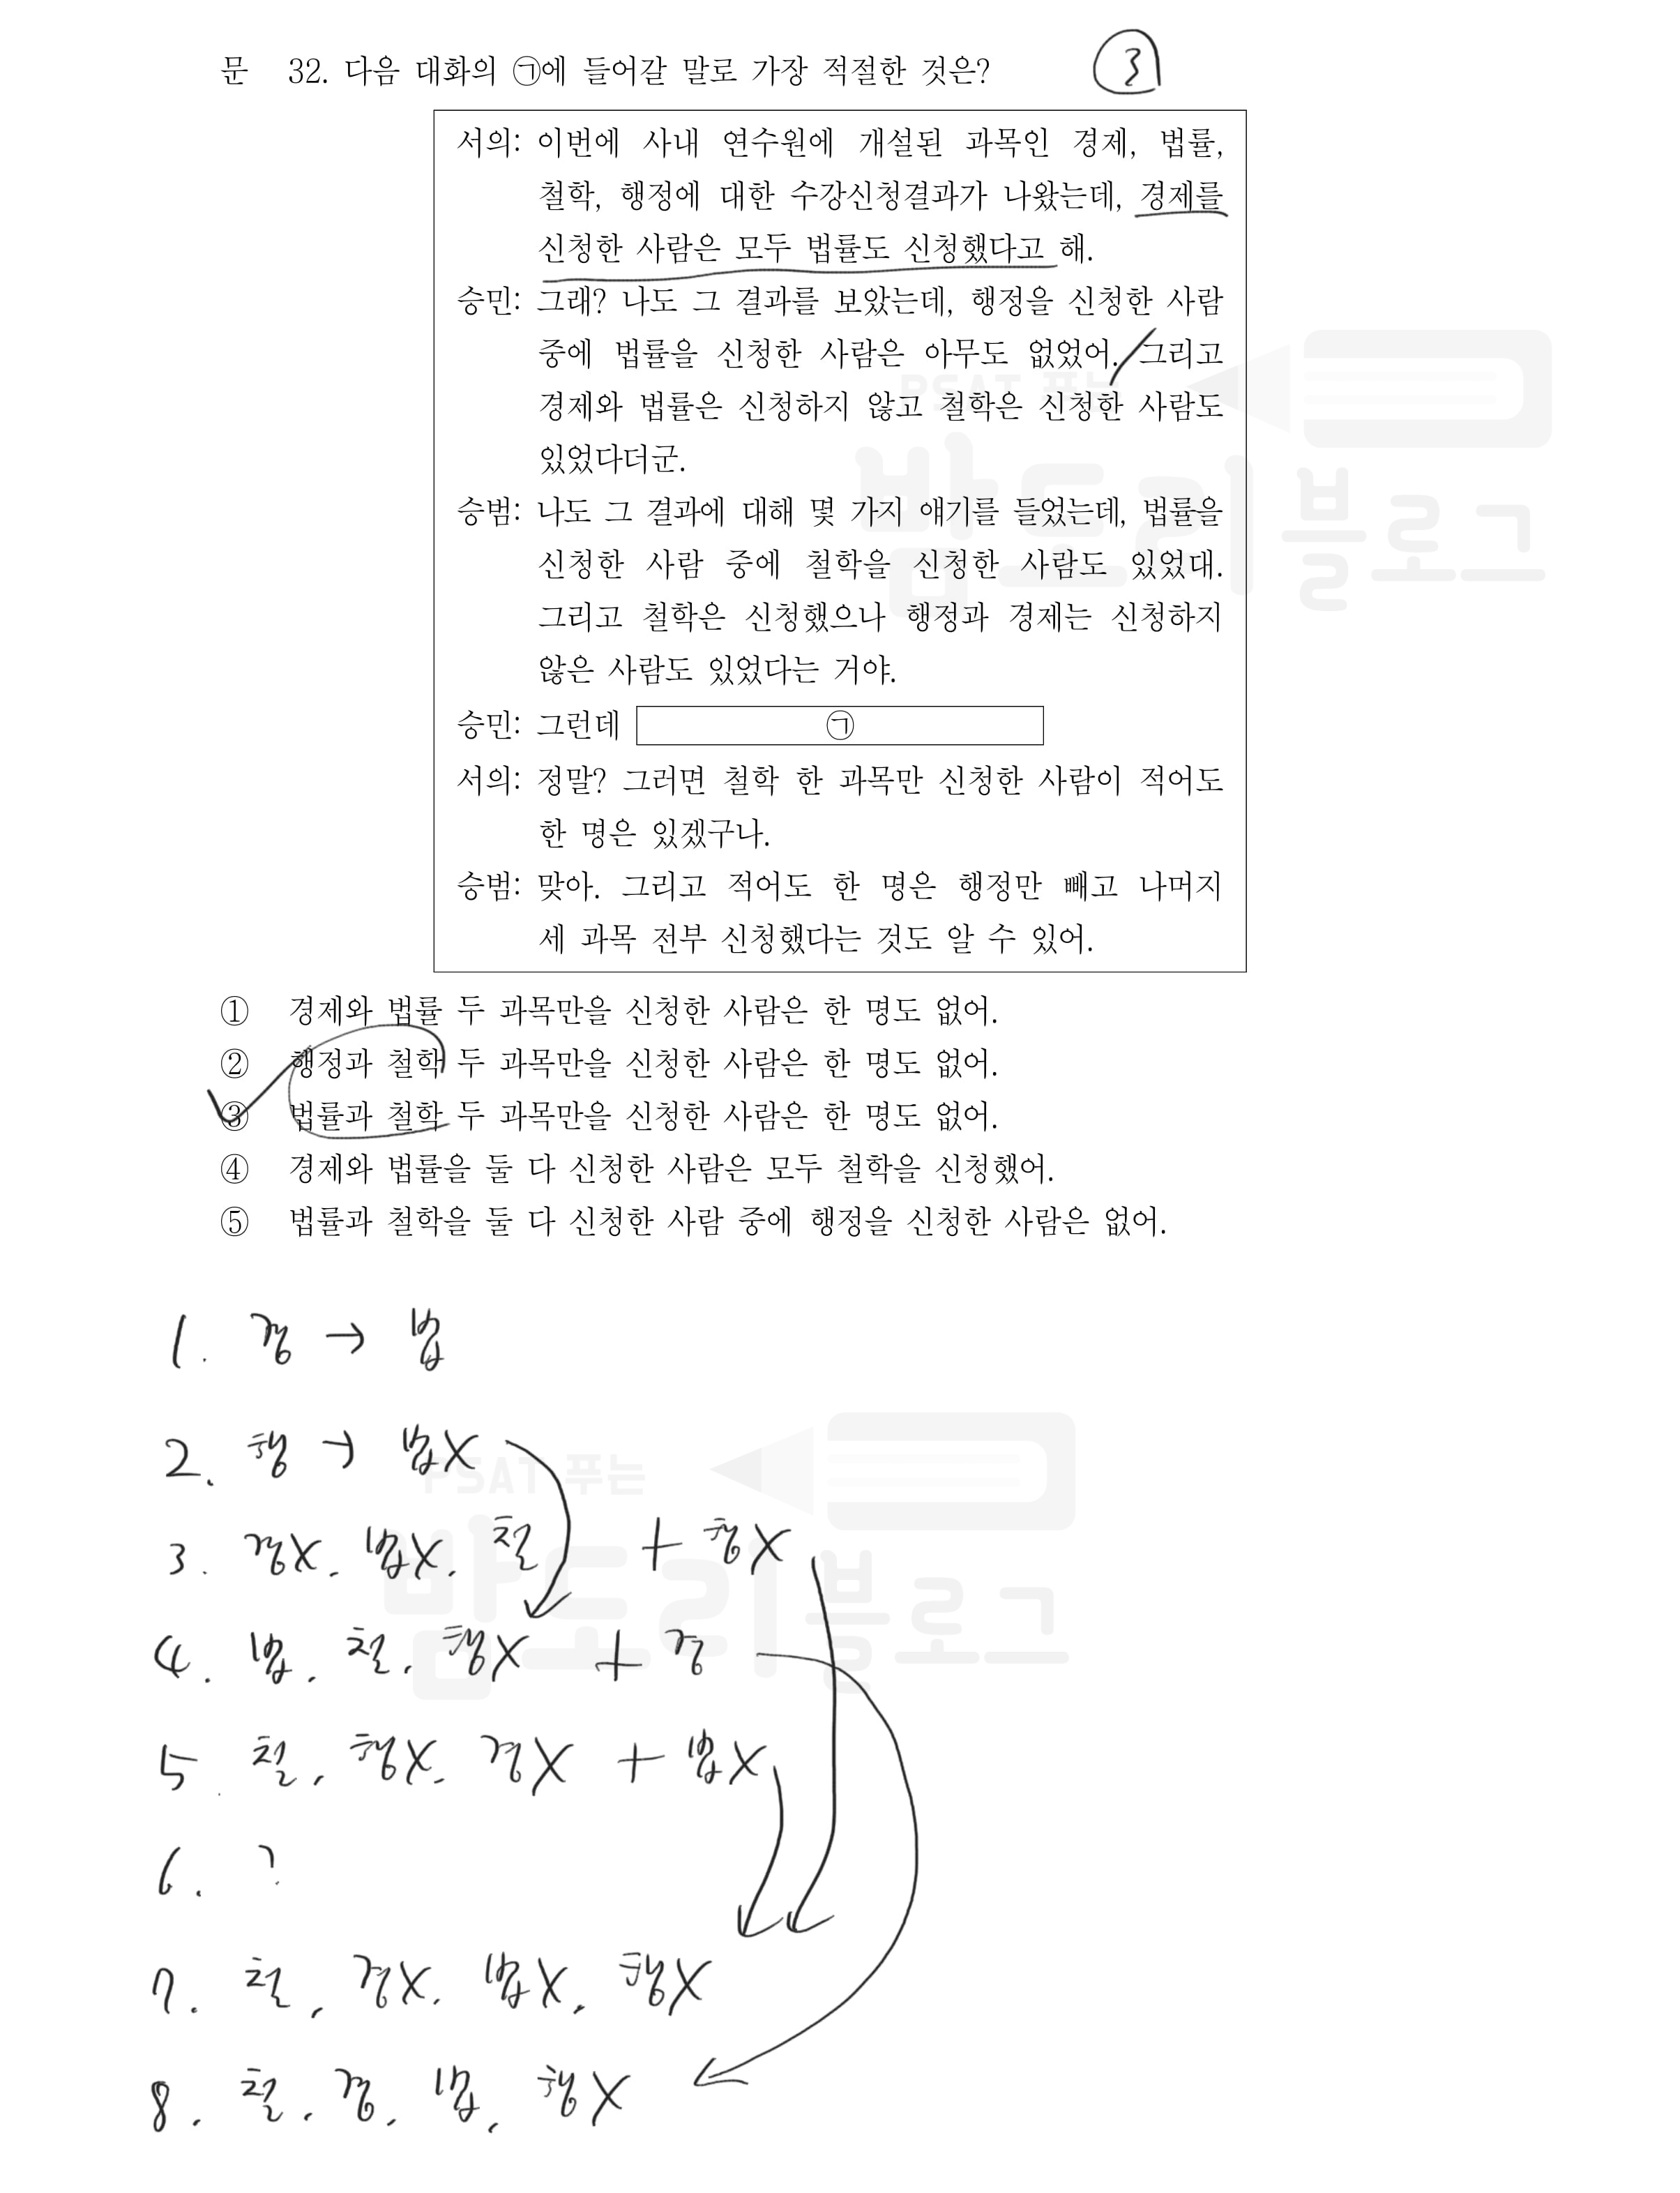 문 32. 다음 대화의 ㉠에 들어갈 말로 가장 적절한 것은? ③
서의: 이번에 사내 연수원에 개설된 과목인 경제, 법률,
철학, 행정에 대한 수강신청결과가 나왔는데, 경제를
신청한 사람은 모두 법률도 신청했다고 해.
승민: 그래? 나도 그 결과를 보았는데, 행정을 신청한 사람
중에 법률을 신청한 사람은 아무도 없었어. 그리고
경제와 법률은 신청하지 않고 철학은 신청한 사람도
있었다더군.
승범: 나도 그 결과에 대해 몇 가지 얘기를 들었는데, 법률을
신청한 사람 중에 철학을 신청한 사람도 있었대.
그리고 철학은 신청했으나 행정과 경제는 신청하지
않은 사람도 있었다는 거야.
승민: 그런데 ㉠
서의: 정말? 그러면 철학 한 과목만 신청한 사람이 적어도
한 명은 있겠구나.
승범: 맞아. 그리고 적어도 한 명은 행정만 빼고 나머지
세 과목 전부 신청했다는 것도 알 수 있어.
① 경제와 법률 두 과목만을 신청한 사람은 한 명도 없어.
② 행정과 철학 두 과목만을 신청한 사람은 한 명도 없어.
③ 법률과 철학 두 과목만을 신청한 사람은 한 명도 없어.
④ 경제와 법률을 둘 다 신청한 사람은 모두 철학을 신청했어.
⑤ 법률과 철학을 둘 다 신청한 사람 중에 행정을 신청한 사람은 없어.
PSAT 푸는
밤도리블로그
1. 경 → 법
2. 행 → 법X
PSAT 푸는
밤도리블로그
3. 경X. 법X. 철 + 행X
4. 법. 철. 행X + 경
5. 철. 행X. 경X + 법X
6. ?
7. 철. 경X. 법X. 행X
8. 철. 경. 법. 행X